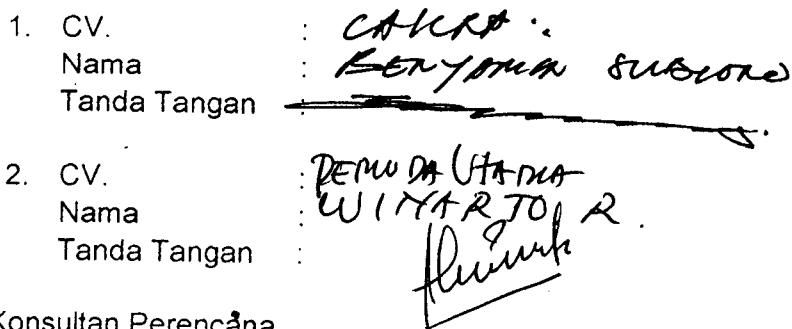 1. CV. : CAKRA.
Nama : BENYAMIN SUBIONO
Tanda Tangan
2. CV. : PEMUDA UTAMA
Nama : WINARTO R.
Tanda Tangan :
Konsultan Perencana